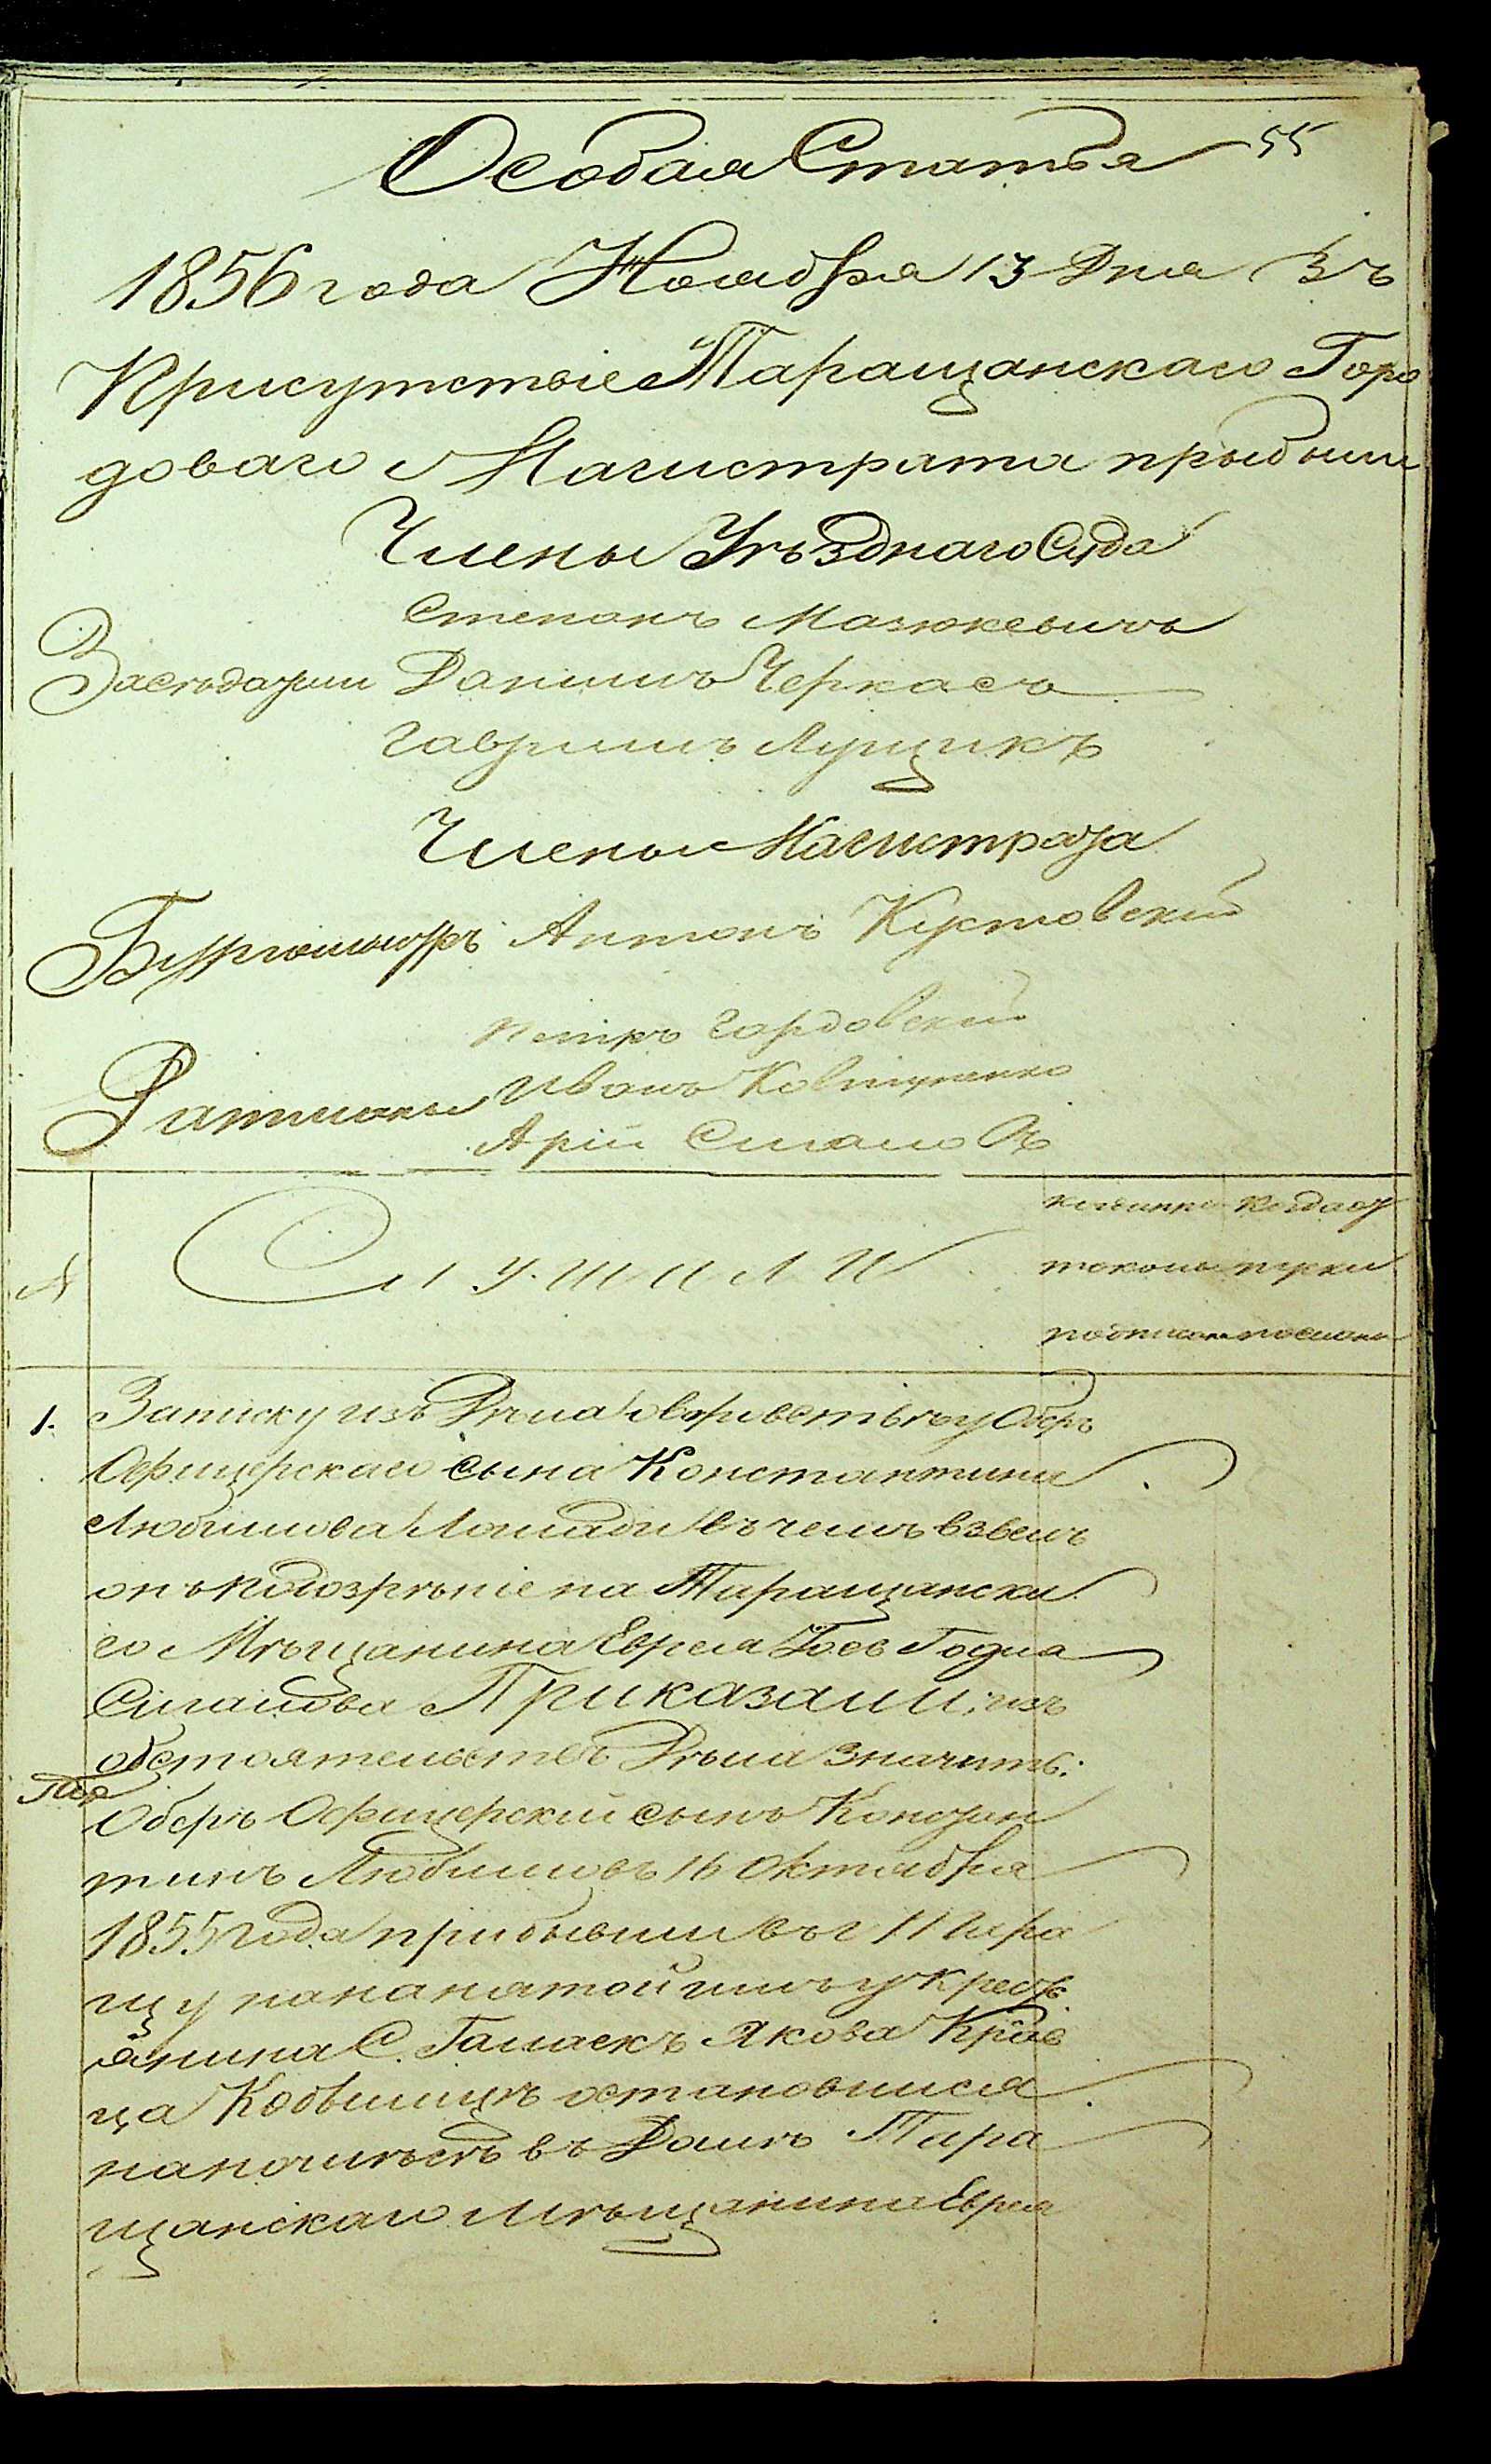 55
Особая Статья
1856 года Ноября 13 Дня Въ
Присутствіе Таращанскаго Горо
доваго Магистрата прыбыли
Члены Уѣзднаго Суда
Степанъ Мазюкевичъ
Засѣдатели Данилъ Черкасъ
Гаврилъ Лущикъ
Члены Магистрата
Бургомистръ Антонъ Кустовскій
Петръ Гардовскій
Ратманы Иванъ Ковтуненко
Арій Сигаловъ
№ Слушали
1. Записку изъ Дѣла о воровствѣ у Оберъ
Офицерскаго сына Константина
Любимова Лошади въ чемъ взвелъ
онъ подозрѣніе на Таращанска
го Мѣщанина Еврея Годла
Сигалова Приказали: изъ
обстоятельствъ Дѣла значитъ:
Оберъ Офицерскій сынъ Констан
тинъ Любимовъ 16 Октября
1855 года прибывши въ г Тара
щу на нанятой имъ у Крестъ
янина С. Якова Крав
ца Кобылицѣ остановился
на ночлегъ въ Домѣ Тара
щанскаго Мѣщанина Еврея